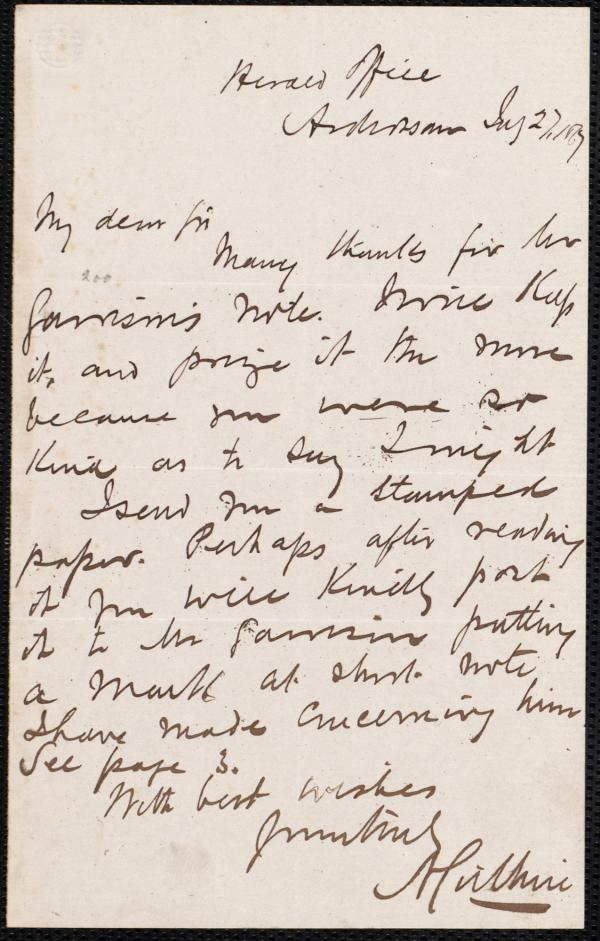 Herald Office
Ardrossan July 27, 1867
My dear Sir
Many thanks for Mr
200
Garrison's note. I will keep
it, and prize it the more
because you were so
kind as to say I might
I send you a stamped
paper. Perhaps after reading
it you will kindly post
it to Mr Garrison putting
a mark at short note
I have made concerning him
See page 3.
With best wishes
Yours truly
A Guthrie